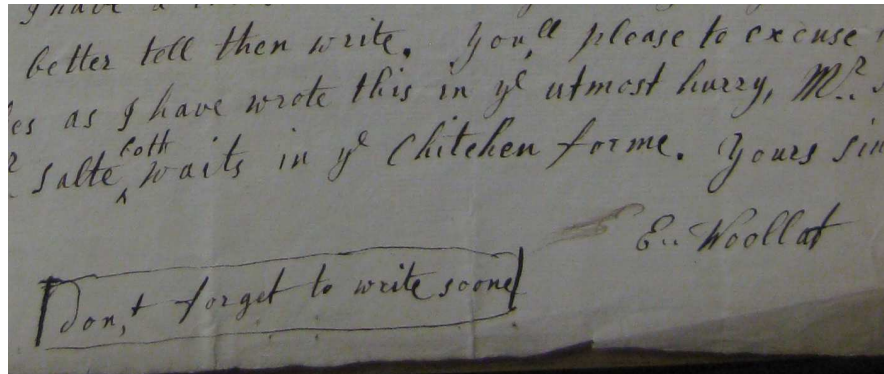 I have a
better tell then write. You,ll please to excuse
es as I have wrote this in ye utmost hurry, Mr.
Salte both waits in ye Chitchen for me. Yours sin
E.. Woollat
Don,t forget to write soone